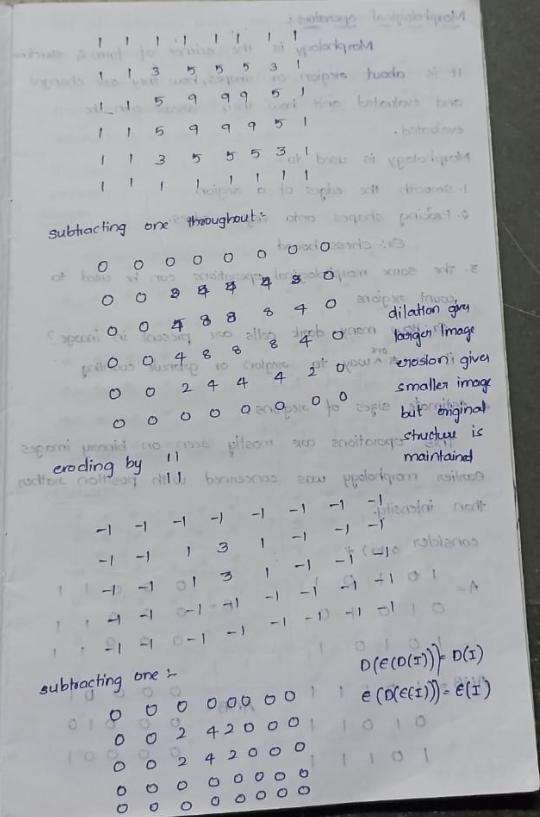 1 1 1 1 1 1 1 1
1 1 3 5 5 5 3 1
1 1 5 9 9 9 5 1
1 1 5 9 9 9 5 1
1 1 3 5 5 5 3 1
1 1 1 1 1 1 1 1
subtracting one throughout:-
0 0 0 0 0 0 0 0
0 0 2 4 4 4 2 0
0 0 4 8 8 8 4 0
0 0 4 8 8 8 4 0
0 0 2 4 4 4 2 0
0 0 0 0 0 0 0 0
dilation give
larger image
erosion; gives
smaller image
but original
structure is
maintained
eroding by 1 1
1 1
-1 -1 -1 -1 -1 -1 -1 -1
-1 -1 1 3 1 -1 -1 -1
-1 -1 1 3 1 -1 -1 -1
-1 -1 -1 -1 -1 -1 -1 -1
-1 -1 -1 -1 -1 -1 -1 -1
D(E(D(I))) = D(I)
E(D(E(I))) = E(I)
subtracting one :-
0 0 0 0 0 0 0 0
0 0 2 4 2 0 0 0
0 0 2 4 2 0 0 0
0 0 0 0 0 0 0 0
0 0 0 0 0 0 0 0